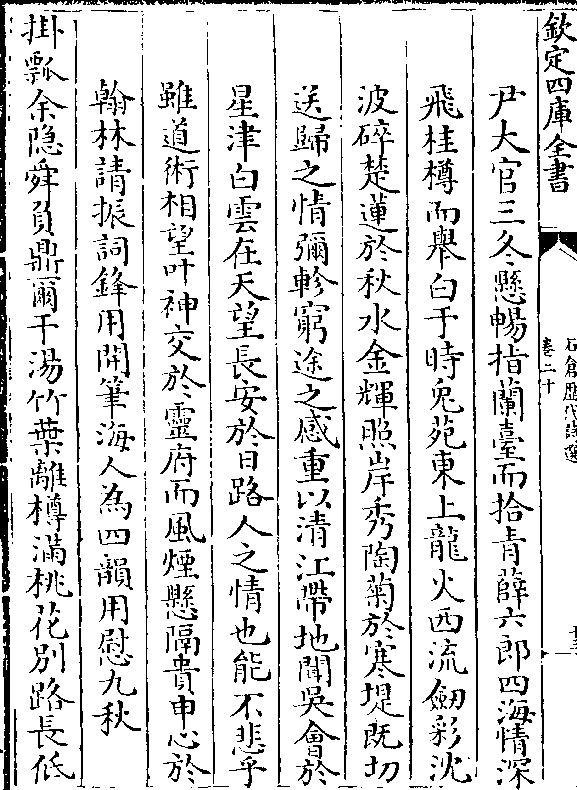 欽定四庫全書
石倉歷代詩選
卷二十
尹大官三冬懸暢指蘭臺而拾青薛六郎四海情深
飛桂樽而舉白于時兎苑東上龍火西流劒彩沈
波碎楚蓮於秋水金輝照岸秀陶菊於寒堤既切
送歸之情彌軫窮途之感重以清江帶地聞吳會於
星津白雲在天望長安於日路人之情也能不悲乎
雖道術相望叶神交於靈府而風煙懸隔貴申心於
翰林請振詞鋒用開筆海人為四韻用慰九秋
掛瓢余隐舜負鼎爾干湯竹葉離樽滿桃花别路長低